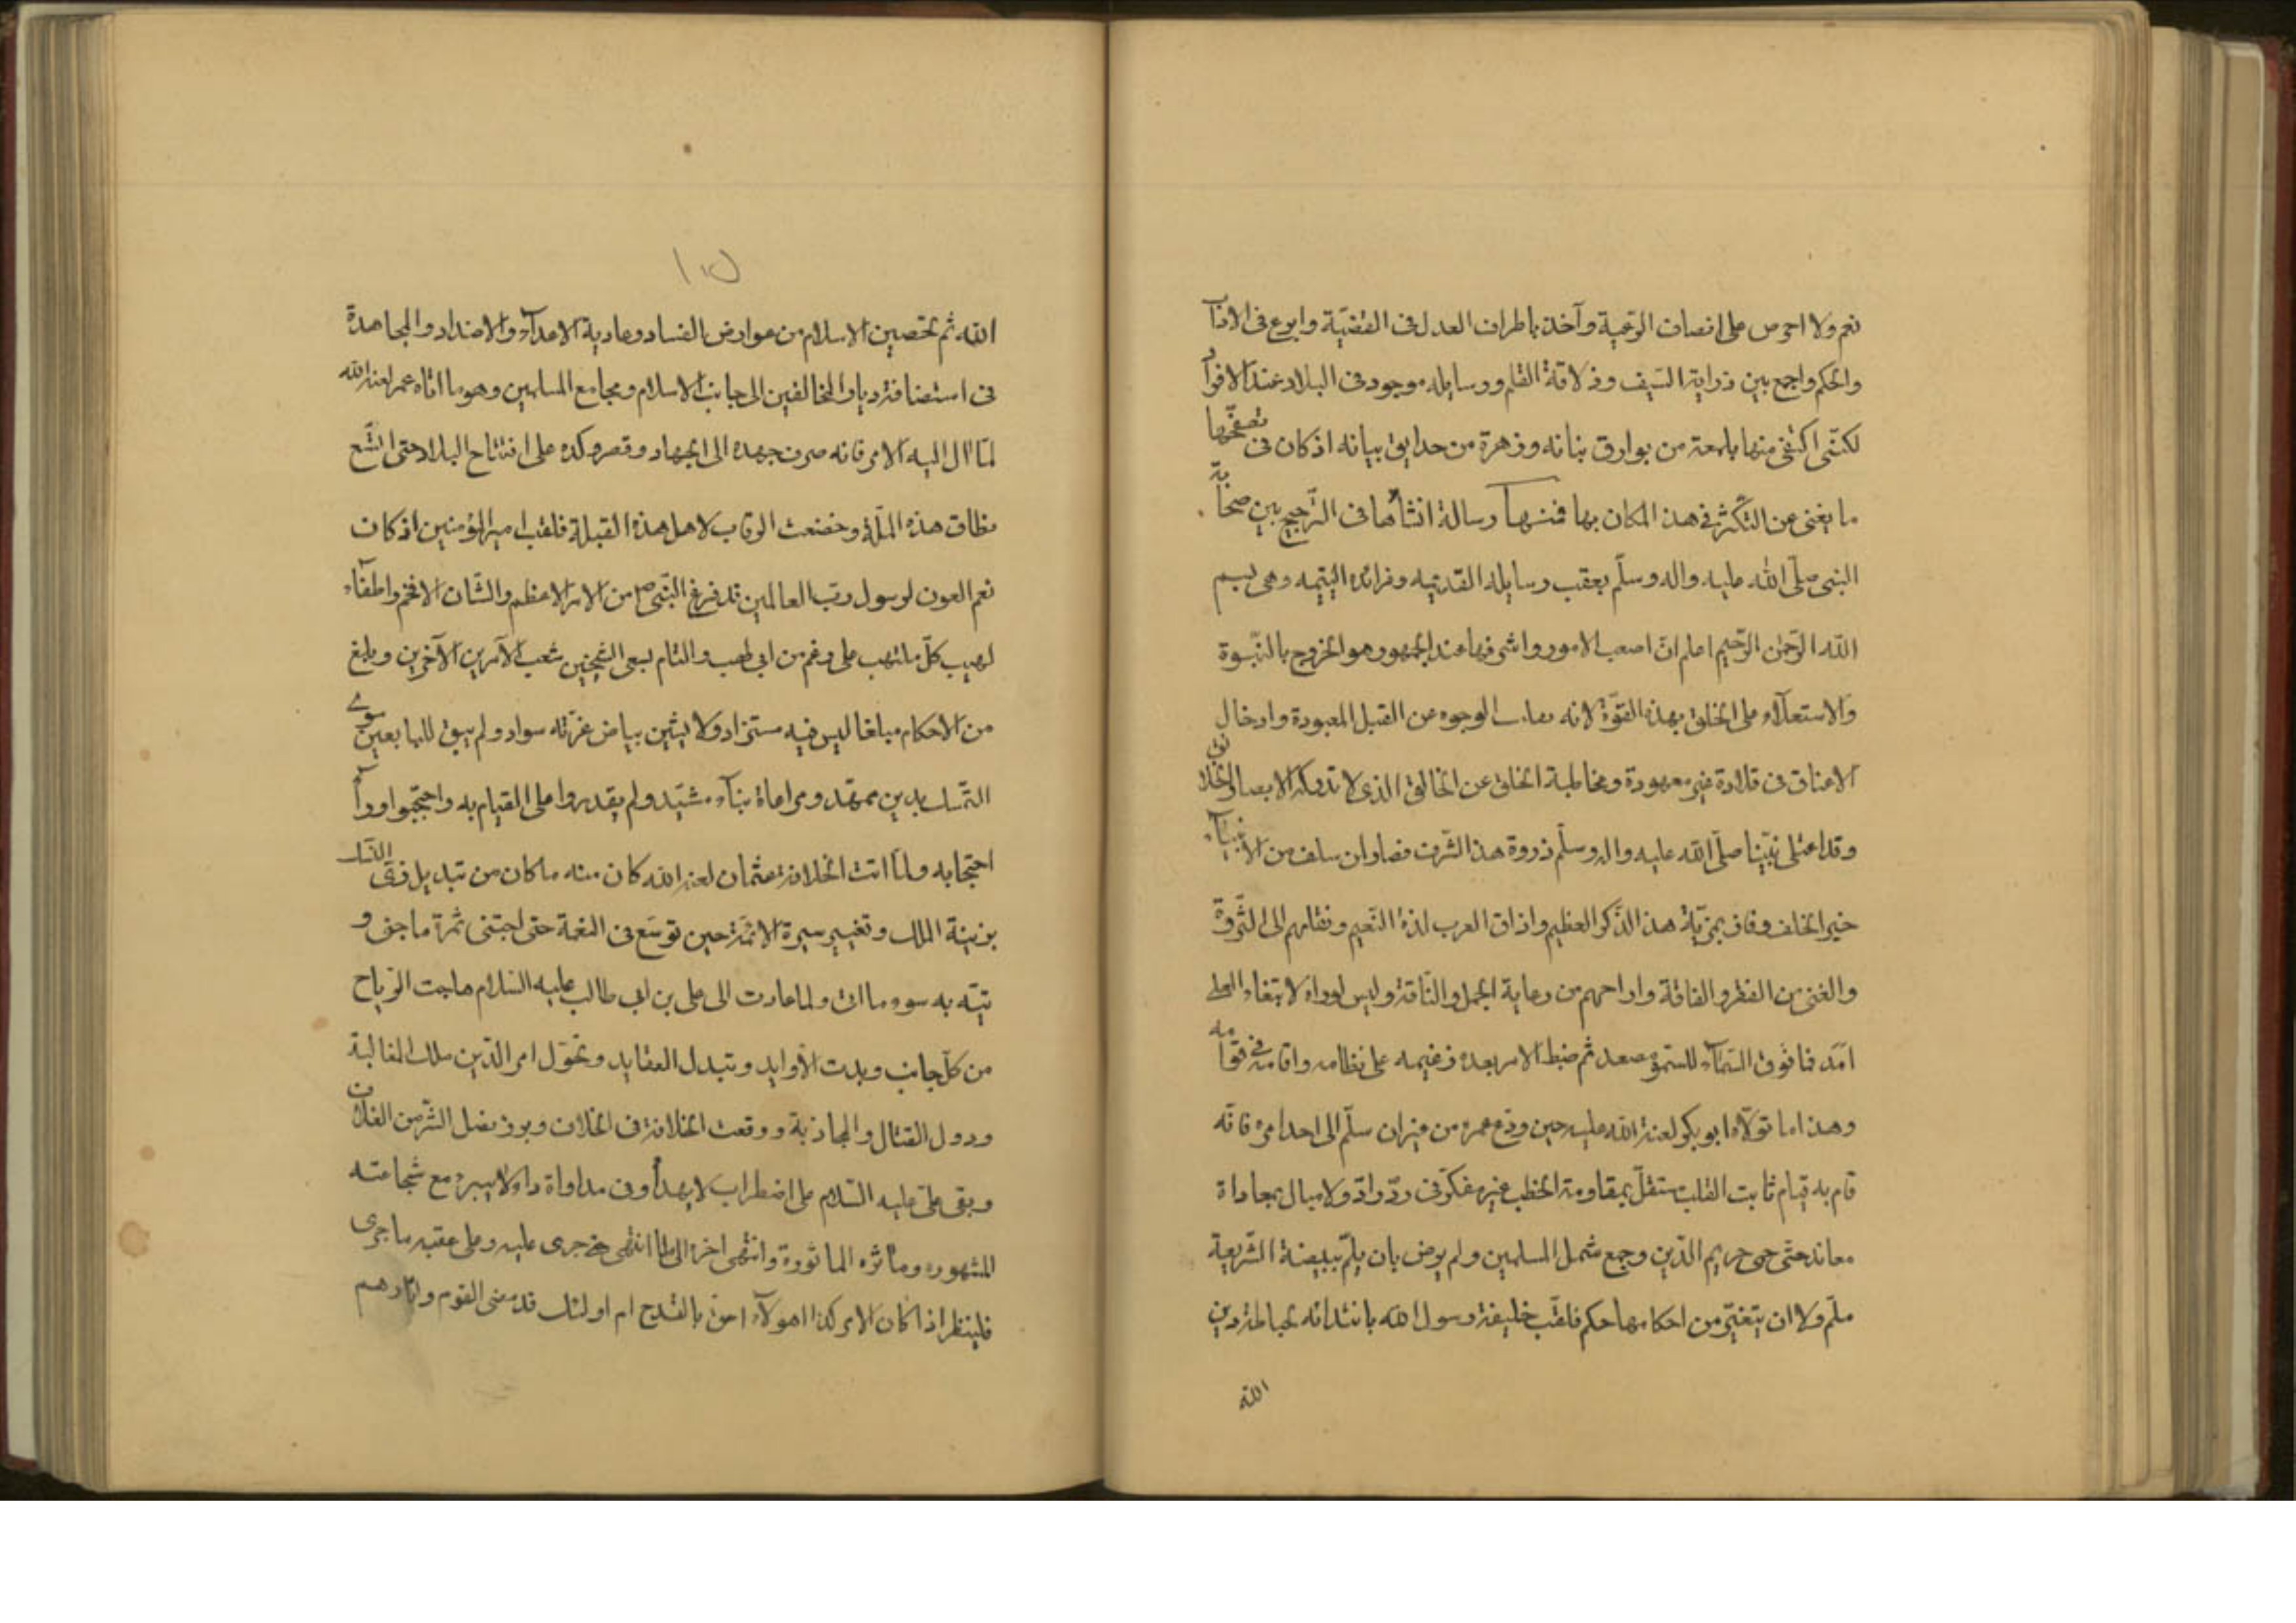 نعم ولا احرص على انصاف الرعية وآخذ باطراف العدل فى القضيّة وابرع فى الاداب
والحكم واجمع بين ذرابة السّيف وذلاقة القلم ورسايله موجود فى البلاد عند الافراد
لكنّى اكتفى منها بلمعة من بوارق بنانه وزهرة من حدايق بيانه اذ كان فى تصفّحها
ما يغنى عن التكثّر فى هذا المكان بها فمنها رسالة انشأها فى الترجيح بين صحابة
النبى صلّى الله عليه واله وسلّم بعقب رسايله القديمه وفرائده اليتيمه وهى بسم
الله الرّحمن الرّحيم اعلم انّ اصعب الامور واشرفها عند الجمهور هو الخروج بالنّبوة
والاستعلاء على الخلق بهذه القوّة لانه الوجوه عن القبل المعبودة وادخال
الاعناق فى قلادة غير معهودة ومخاطبة الخلق عن الخالق الذى لا تدركه الابصار
وقد اعتلى نبيّنا صلّى الله عليه واله وسلّم ذروة هذا الشّرف فصار ان سلف من الانبيآء
خير الخلف وفاز بمزيّة هذا الذّكر العظيم واذاق العرب لذة النّعيم ونقلهم الى الثّروة
والغنى من الفقر والفاقة واراحهم من رعاية الجمل والنّاقة وليس لوراء لابتغاء العلى
امد فما فوق السّمآء للسّمو مصعد ثم ضبط الامر بعده زعيمه على نظامه واقامته فى قوامه
وهذا ما تولّاه ابو بكر لعنة الله عليه حين ودّع عمره من سلّم الى احد امره فانّه
قام به قيام ثابت القلب مستقلّ بمقاومة الخطب غير مفكر فى ردّ رادّ ولا مبال بمعاداة
معاند حتى حمى حريم الدّين وجمع شمل المسلمين ولم يرض بان يلمّ ببيضة الشّريعة
ملّم ولا ان يتغيّر من احكامها حكم فلقّب خليفة رسول الله بين
الله
١٥
الله ثم تحصين الاسلام من عوارض الفساد وعادية الاعدآء والاضداد والمجاهدة
فى استضافة ديار المخالفين الى جانب الاسلام ومجامع المسلمين وهو ما اتاه عمر لعنه الله
لمّا ال اليه الامر فانه صرف جهده الى الجهاد وقصر وكده على افتتاح البلاد حتى اتّسع
نطاق هذه الملّة وخضعت الرقاب لاهل هذه القبلة فلقب امير المؤمنين اذ كان
نعم العون لرسول ربّ العالمين قد فرغ النّبى ص من الامر الاعظم والشّان الافخم واطفآء
لهيب كلّ ملتهب على رغم من ابى لهب والتام بسعى الشيخين شعب الآمرين الآخرين وبلغ
من الاحكام مبلغا ليس فيه مستزاد ولا يشين بياض غرّته سواد ولم يبق للتابعين سوى
التّمسك بدين ممهّد ومراعاة بنآء مشيّد ولم يقدروا على القيام به واحتجبوا ورآ
احتجابه ولمّا اتت الخلافة عثمان لعنه الله كان منه ما كان من تبديل زىّ النّسك
بزينة الملك وتغيير سيرة الائمة حين توسّع فى النعمة حتى اجتنى ثمرة ما جنى و
تيّه به سوء ما اتى ولما عادت الى على بن ابى طالب عليه السّلام هاجت الرّياح
من كلّ جانب وبدت الأوابد وتبدل العقايد وتحوّل امر الدّين ملك المغالبة
ودول القتال والمجاذبة ووقعت الخلافة فى الخلاف وبرز نصل الشّر من الغلاف
وبقى علىّ عليه السّلام على اضطراب لا يهدأ وفى مداواة داء لا يبرء مع شجاعته
المشهوره ومآثره الماثورة وانتهى اخره الى ما انتهى جرى عليه وعلى عقبه ما جرى
فلينظر اذا كان الامر كذا اهولآء احق بالقدح ام اولئك قد مضى القوم واثارهم